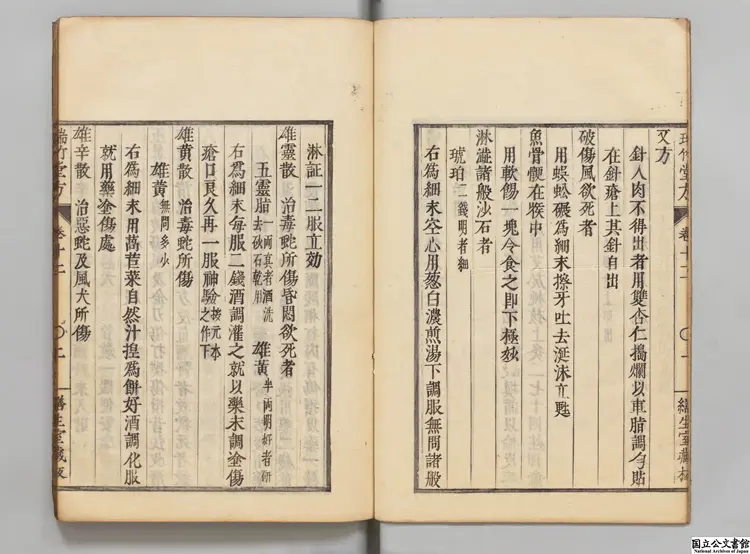 又方
針入肉不得出者用雙杏仁搗爛以車脂調勻貼
在針瘡上其針自出
破傷風欲死者
用蜈蚣碾為細末擦牙吐去涎沫立甦
魚骨骾在喉中
用軟餳一塊令食之即下極妙
淋澁諸般沙石者
琥珀二錢明者細
右為細末空心用葱白濃煎湯下調服無問諸般
瑞竹堂方 卷十二 〇一 繕生室藏板
淋証一二服立効
雄靈散 治毒蛇所傷昏悶欲死者
五靈脂一兩真者酒洗去砂石乾用 雄黃半兩明好者研
右為細末每服二錢酒調灌之就以藥末調塗傷
瘡口良久再一服神驗按元本之作下
雄黃散 治毒蛇所傷
雄黃無問多少
右為細末用萵苣菜自然汁捏為餅好酒調化服
就用藥塗傷處
雄辛散 治惡蛇及風犬所傷
瑞竹堂方 卷十二 〇二 繕生室藏板
国立公文書館
National Archives of Japan